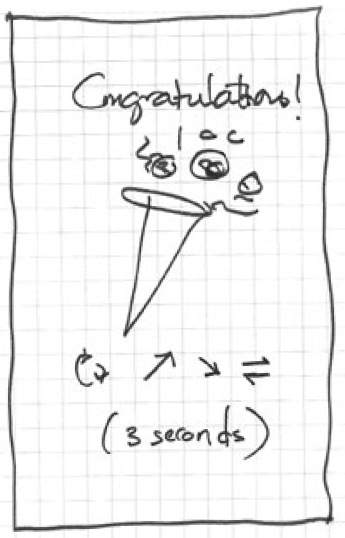 Congratulations!
(3 seconds)